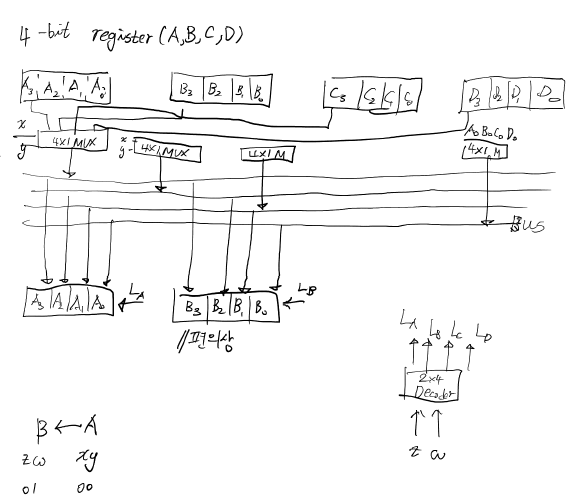 4-bit register (A,B,C,D)
A₃ A₂ A₁ A₀
B₃ B₂ B₁ B₀
C₃ C₂ C₁ C₀
D₃ D₂ D₁ D₀
x
y
4x1 MUX
x
y
4x1 MUX
4x1 M
A₀ B₀ C₀ D₀
4x1 M
BUS
A₃ A₂ A₁ A₀
L_A
B₃ B₂ B₁ B₀
L_B
//편의상
L_A L_B L_C L_D
2x4
Decoder
z w
B ← A
zw xy
01 00